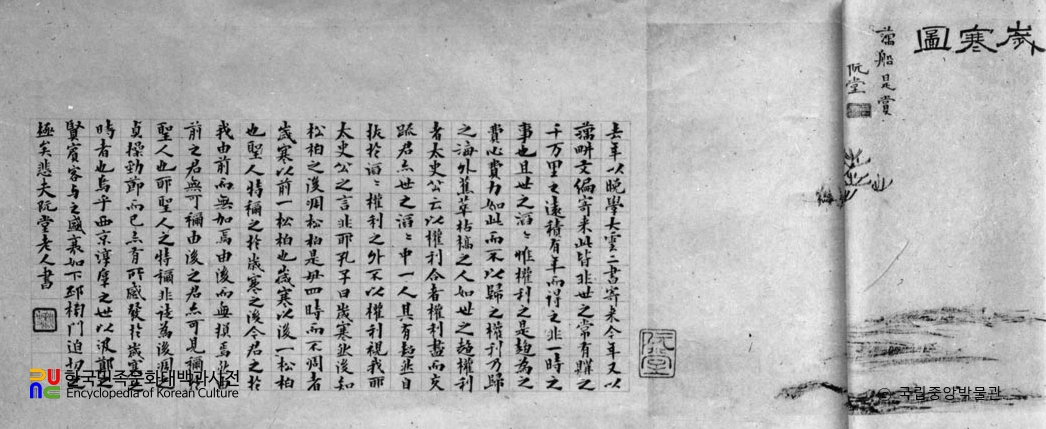 歲寒圖
藕船是賞
阮堂
去年以晚學大雲二書寄來今年又以
藕畊文編寄來此皆非世之常有購之
千万里之遠積有年而得之非一時之
事也且世之滔〻惟權利之是趨爲之
費心費力如此而不以歸之權利乃歸
之海外蕉萃枯槁之人如世之趨權利
者太史公云以權利合者權利盡而交
疏君亦世之滔〻中一人其有超然自
拔於滔〻權利之外不以權利視我耶
太史公之言非耶孔子曰歲寒然後知
松柏之後凋松柏是毋四時而不凋者
歲寒以前一松柏也歲寒以後一松柏
也聖人特稱之於歲寒之後今君之於
我由前而無加焉由後而無損焉然由
前之君無可稱由後之君亦可見稱於
聖人也耶聖人之特稱非徒爲後凋之
貞操勁節而已亦有所感發於歲寒之
時者也烏乎西京淳厚之世以汲鄭之
賢賓客与之盛衰如下邳榜門迫切之
極矣悲夫阮堂老人書
阮堂
한국민족문화대백과사전
Encyclopedia of Korean Culture
© 국립중앙박물관